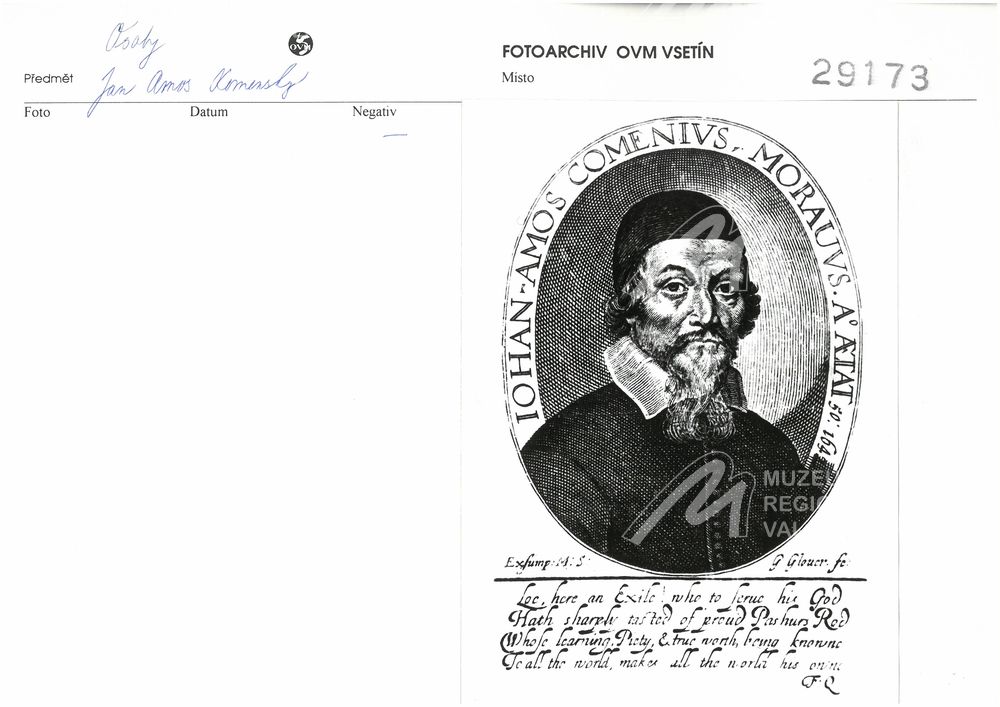 Osoby
OVM
Předmět Jan Amos Komenský
Foto Datum Negativ
FOTOARCHIV OVM VSETÍN
Místo
29173
IOHAN-AMOS COMENIVS, MORAVVS. A° ÆTAT 50: 164
MUZE
REGIO
VAL
Exsump: M: S: G Glover. fe:
Loe, here an Exile! who to serue his God
Hath sharply tasted of proud Pashurs Rod
Whose learning, Piety, & true worth, being knowne
To all the world, makes all the world his owne
F. Q